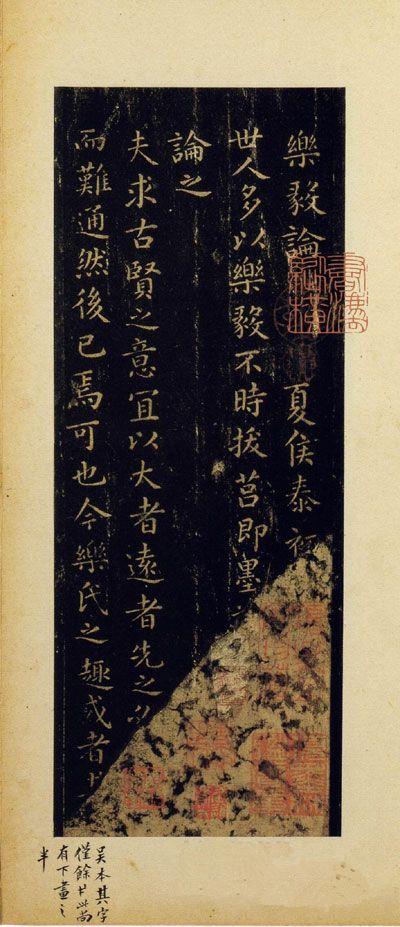 樂毅論 夏侯泰
世人多以樂毅不時拔莒即墨
論之
夫求古賢之意宜以大者遠者先之
而難通然後已焉可也今樂氏之趣或者
吳本其字
僅餘 此尚
有下畫之
半